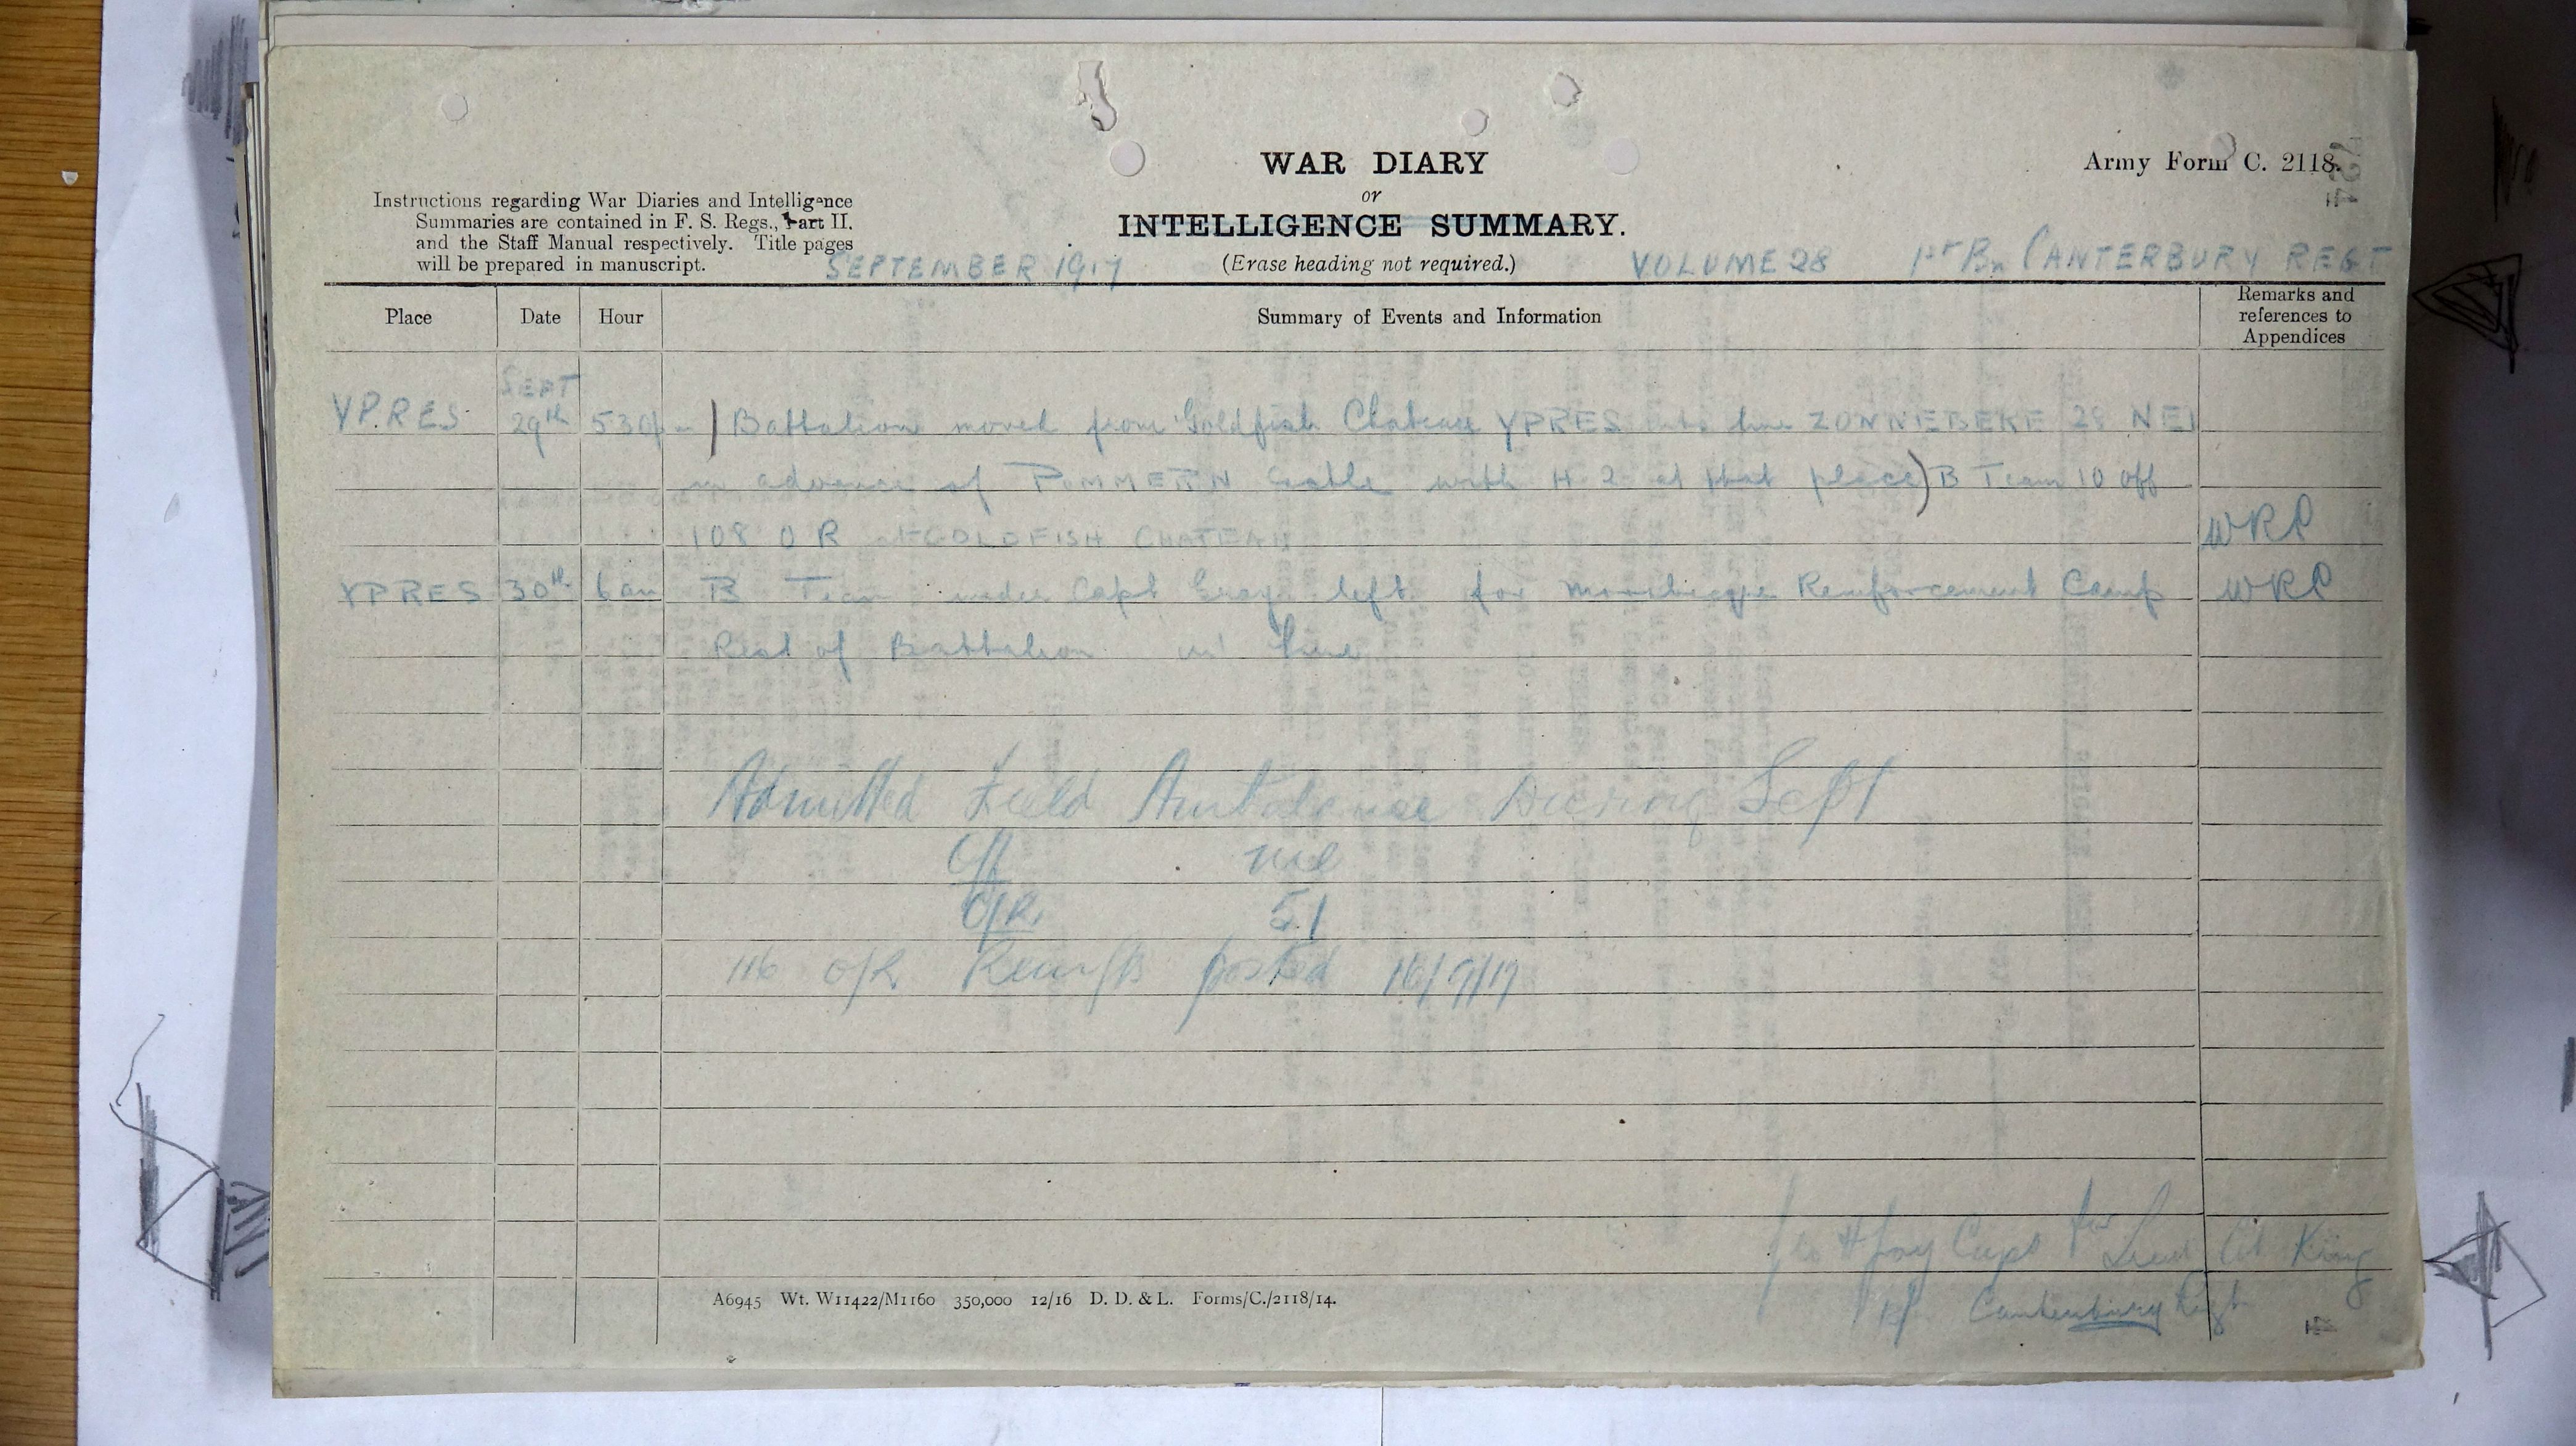 WAR DIARY
or
INTELLIGENCE SUMMARY.
(Erase heading not required.)
Army Form C. 2118.
Instructions regarding War Diaries and Intelligence
Summaries are contained in F. S. Regs., Part II.
and the Staff Manual respectively. Title pages
will be prepared in manuscript.
SEPTEMBER 1917
VOLUME 28 1st Bn CANTERBURY REGT
Place Date Hour Summary of Events and Information Remarks and references to Appendices
YPRES SEPT 29th 530pm Battalion moved from Goldfish Chateau YPRES into line ZONNEBEKE 28 NE1
in advance of POMMERN Castle with H Q at that place) B Team 10 off
108 O R at GOLDFISH CHATEAU WRP
YPRES 30th 6am B Team under Capt Gray left for Reinforcement Camp WRP
Rest of Battalion in line
Admitted Field Ambulance During Sept
Off nil
O/R. 51
116 O/R Reinfts posted 16/9/17
Capt for Lieut Col King
1st Canterbury Regt
A6945 Wt. W11422/M1160 350,000 12/16 D. D. & L. Forms/C./2118/14.